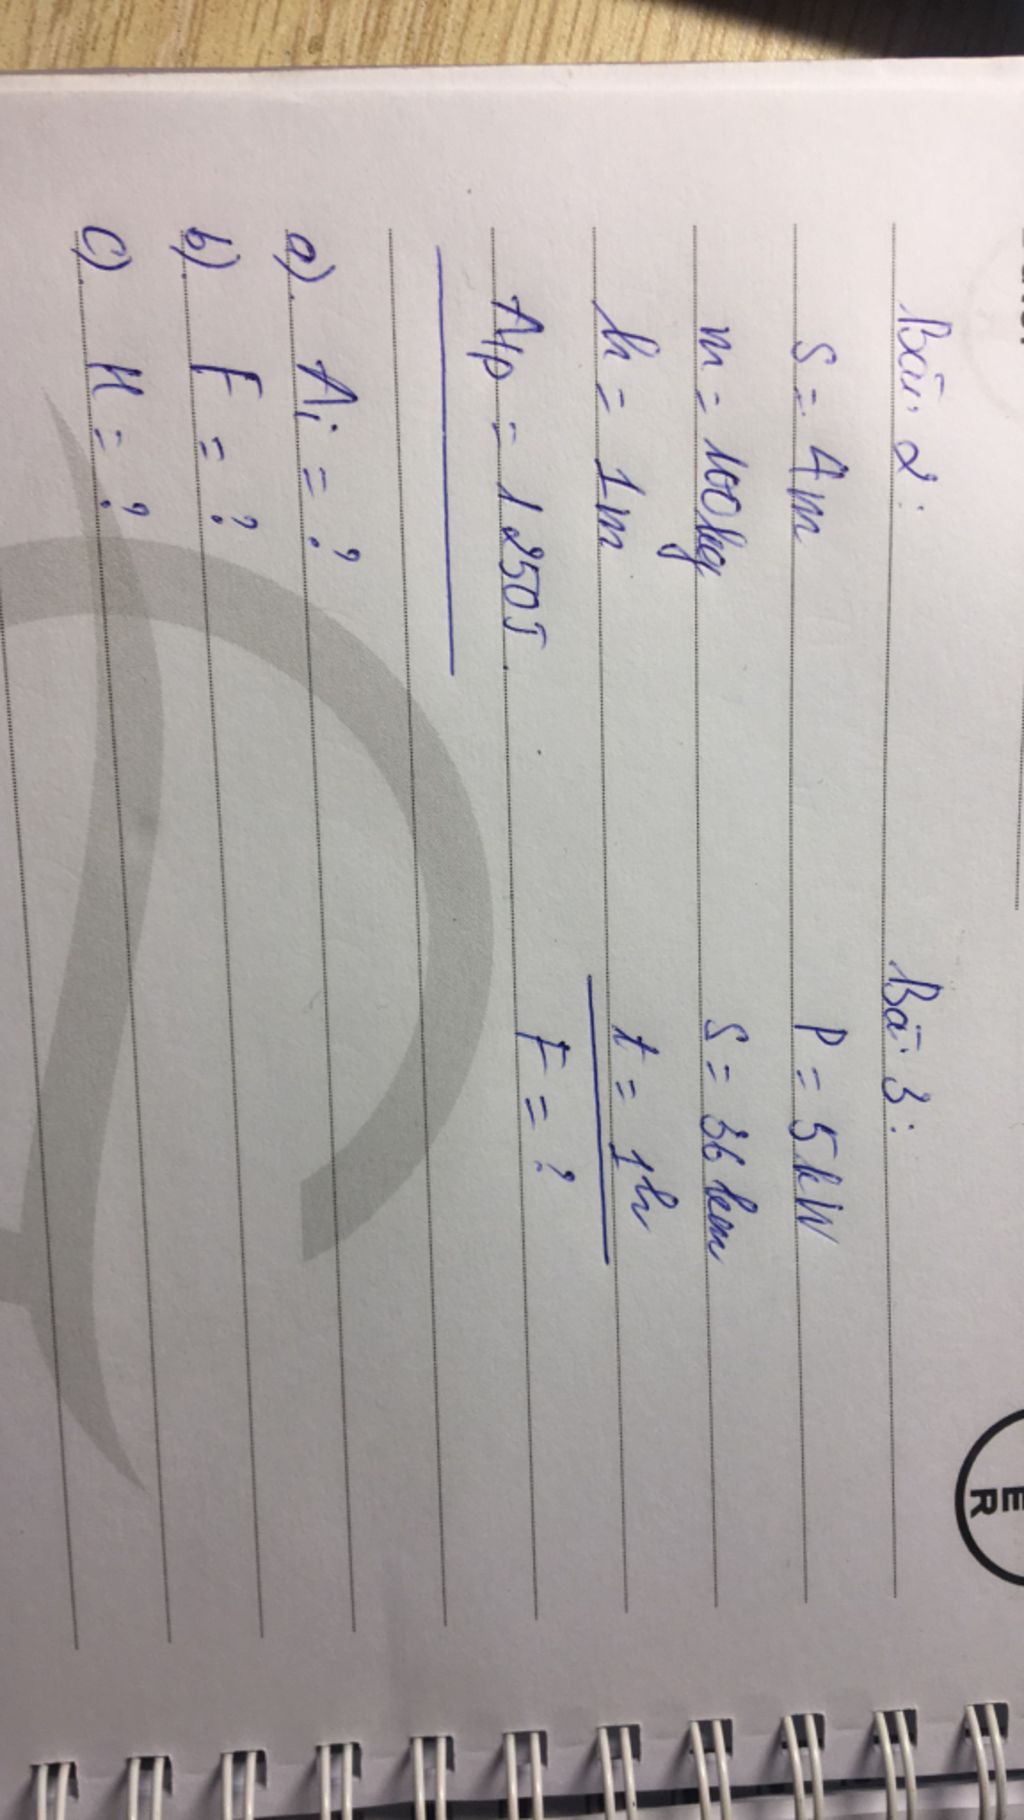 Bài 2:
S = 4m
m = 100kg
h = 1m
Atp = 1250J
a). Ai = ?
b) F = ?
c) H = ?
Bài 3:
P = 5kW
S = 36km
t = 1h
F = ?
E
R